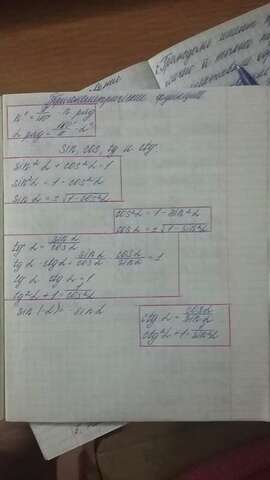 Тригонометрические функции
n° = π/180 · n рад
α рад = 180°/π · α°
sin, cos, tg и ctg.
sin²α + cos²α = 1
sin²α = 1 - cos²α
sin α = ±√1 - cos²α
cos²α = 1 - sin²α
cos α = ±√1 - sin²α
tg α = sin α/cos α
tg α · ctg α = sin α/cos α · cos α/sin α = 1
tg α · ctg α = 1
tg²α + 1 = 1/cos²α
sin (-α) = - sin α
ctg α = cos α/sin α
ctg²α + 1 = 1/sin²α